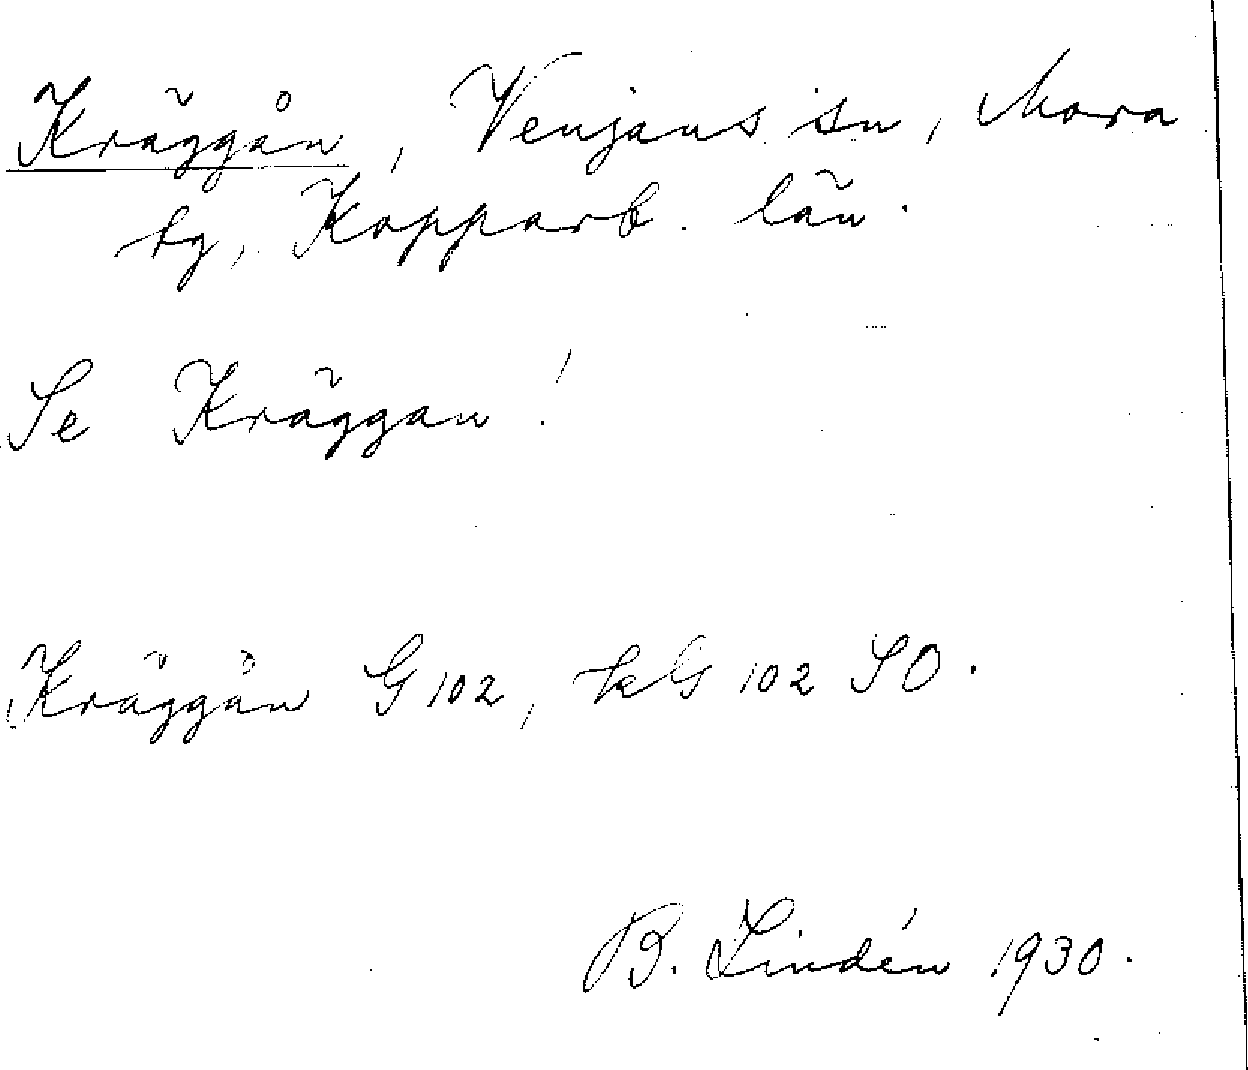 Kräggån, Venjans sn, Mora
tg, Kopparb. län.
Se Kräggan!
Kräggån G 102, kG 102 SO.
B. Lindén 1930.